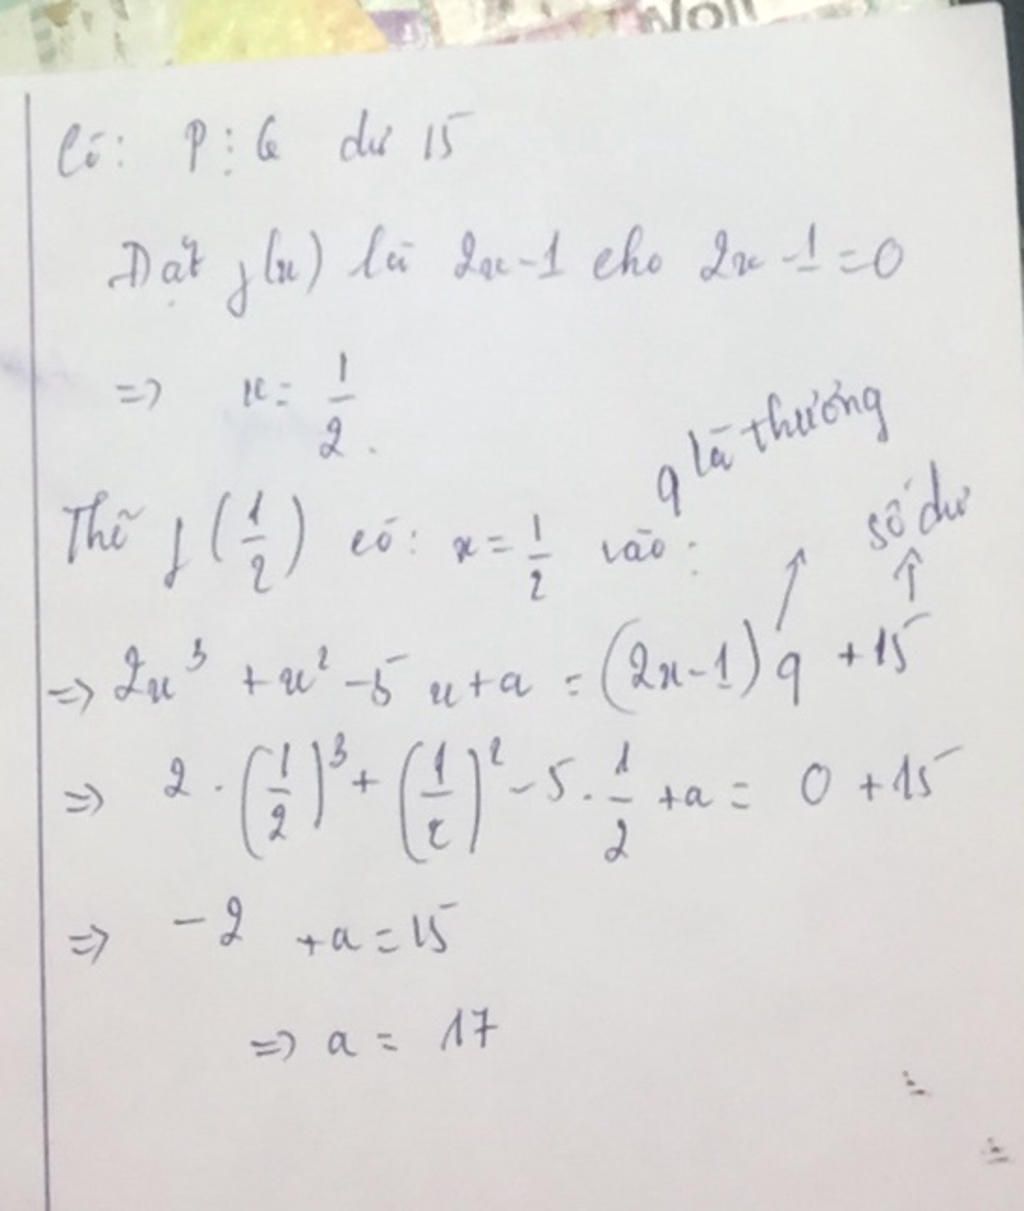 Voll
Có: P ⋮ Q dư 15
Đặt f(x) là 2x-1 cho 2x-1=0
=> x = 1/2.
Thế f(1/2) có: x = 1/2 vào:
q là thương
số dư
=> 2x³ + x² - 5x + a = (2x-1)q + 15
=> 2 . (1/2)³ + (1/2)² - 5 . 1/2 + a = 0 + 15
=> -2 + a = 15
=> a = 17